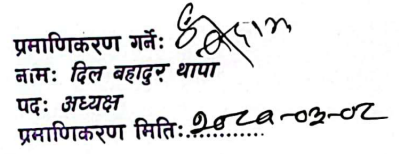 प्रमाणिकरण गर्ने:
नाम: दिल बहादुर थापा
पद: अध्यक्ष
प्रमाणिकरण मिति:............